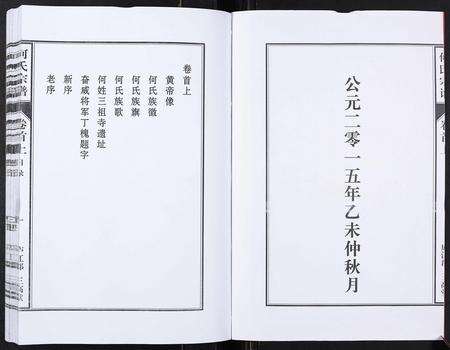 公元二零一五年乙未仲秋月
卷首上
黄帝像
何氏族徽
何氏族旗
何氏族歌
何姓三祖寺遗址
奋威将军丁槐题字
新序
老序
何氏宗谱
卷首上
目录